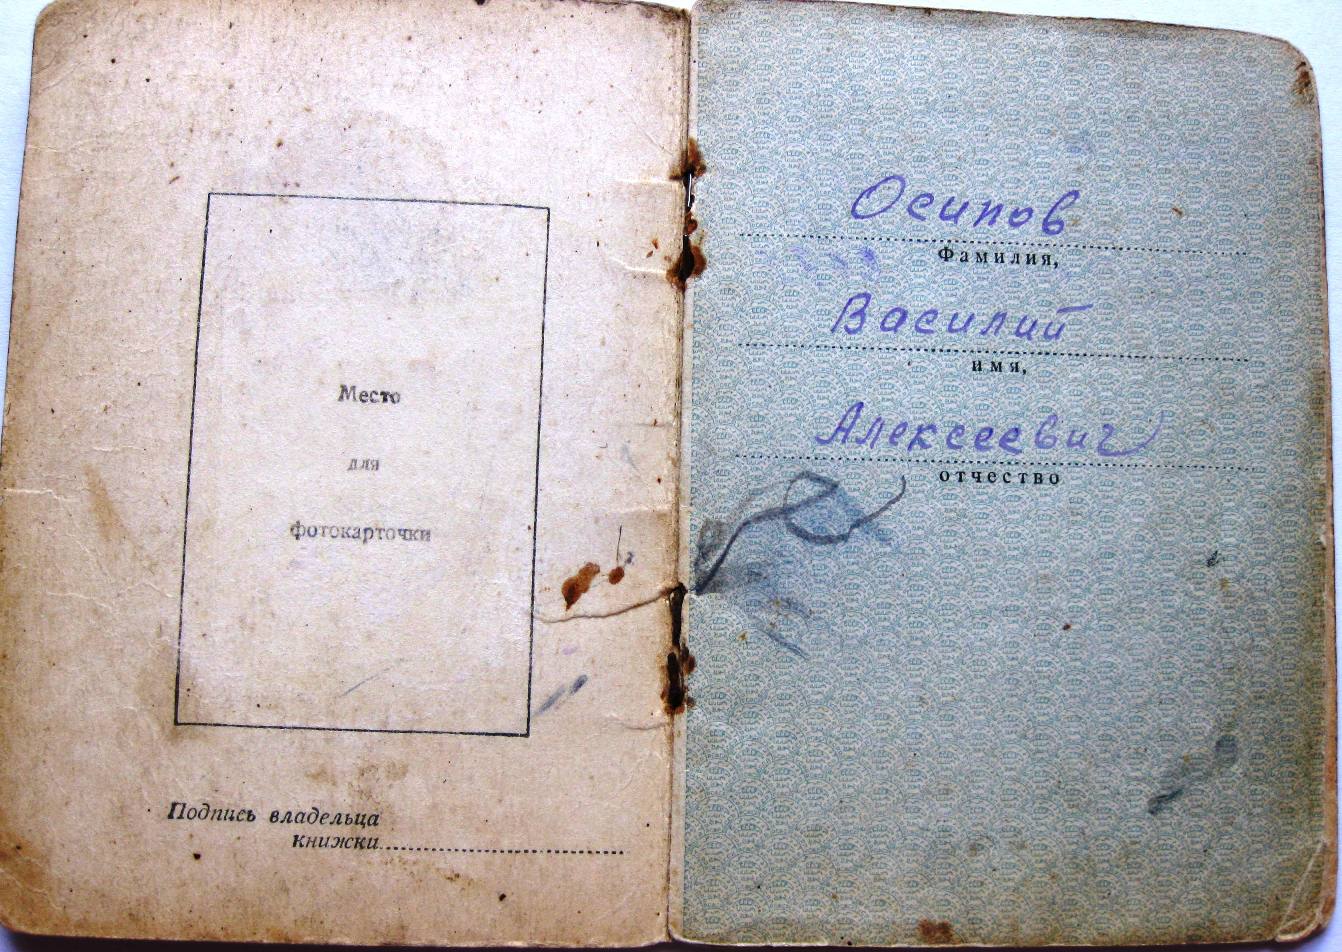 Место
для
фотокарточки
Подпись владельца
книжки
Осипов
Фамилия,
Василий
имя,
Алексеевич
отчество